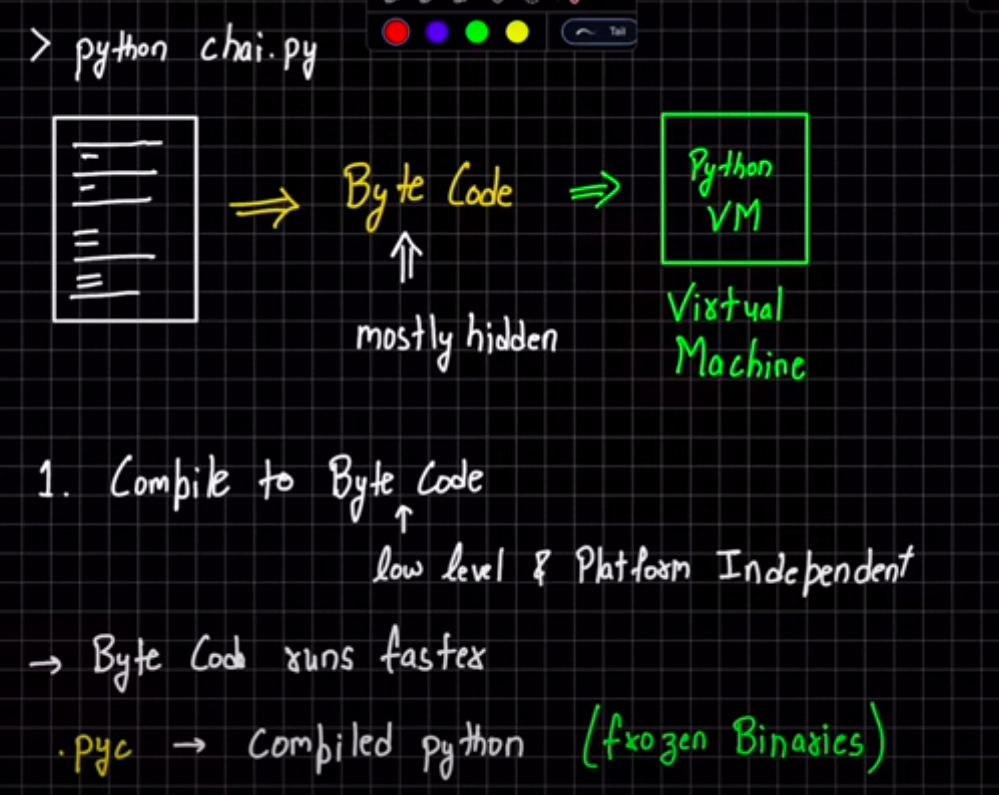 > python chai.py
Tail
Byte Code
Python
VM
mostly hidden
Virtual
Machine
1. Compile to Byte Code
low level & Platform Independent
→ Byte Code runs faster
.pyc → Compiled python (frozen Binaries)